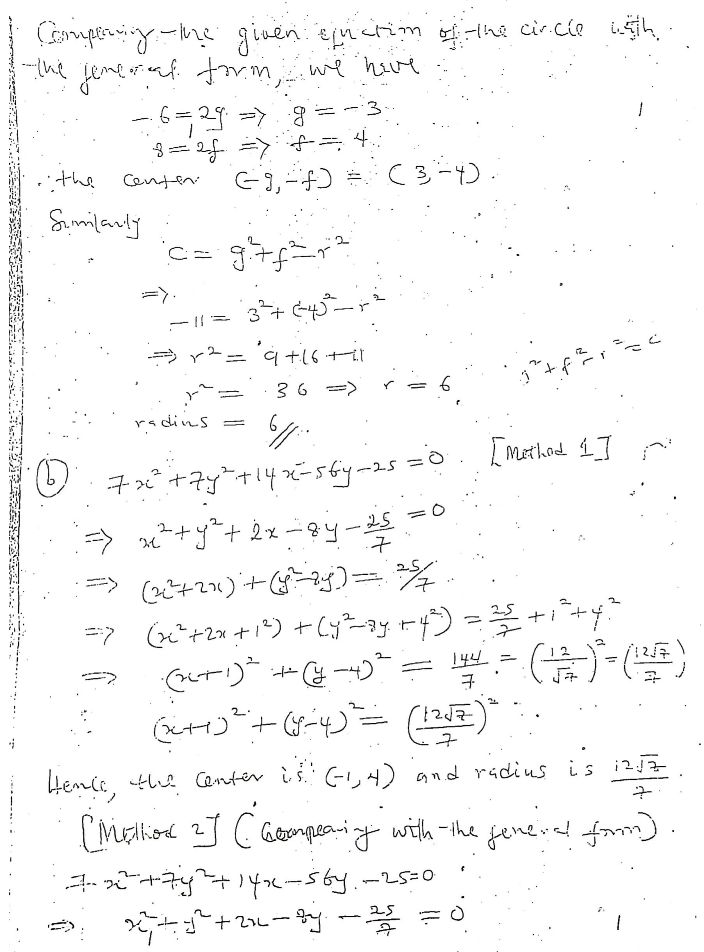 Comparing the given equation of the circle with
the general form, we have
-6 = 2g => g = -3
8 = 2f => f = 4
∴ the center (-g, -f) = (3, -4).
Similarly
c = g² + f² - r²
=>
-11 = 3² + (-4)² - r²
=> r² = 9 + 16 + 11
r² = 36 => r = 6
g² + f² - r² = c
radius = 6 //
(b) 7x² + 7y² + 14x - 56y - 25 = 0 [Method 1]
=> x² + y² + 2x - 8y - 25/7 = 0
=> (x² + 2x) + (y² - 8y) = 25/7
=> (x² + 2x + 1²) + (y² - 8y + 4²) = 25/7 + 1² + 4²
=> (x+1)² + (y-4)² = 144/7 = (12/√7)² = (12√7/7)
∴ (x+1)² + (y-4)² = (12√7/7)²
Hence, the center is (-1, 4) and radius is 12√7/7.
[Method 2] (Comparing with the general form).
7x² + 7y² + 14x - 56y - 25 = 0
=> x² + y² + 2x - 8y - 25/7 = 0